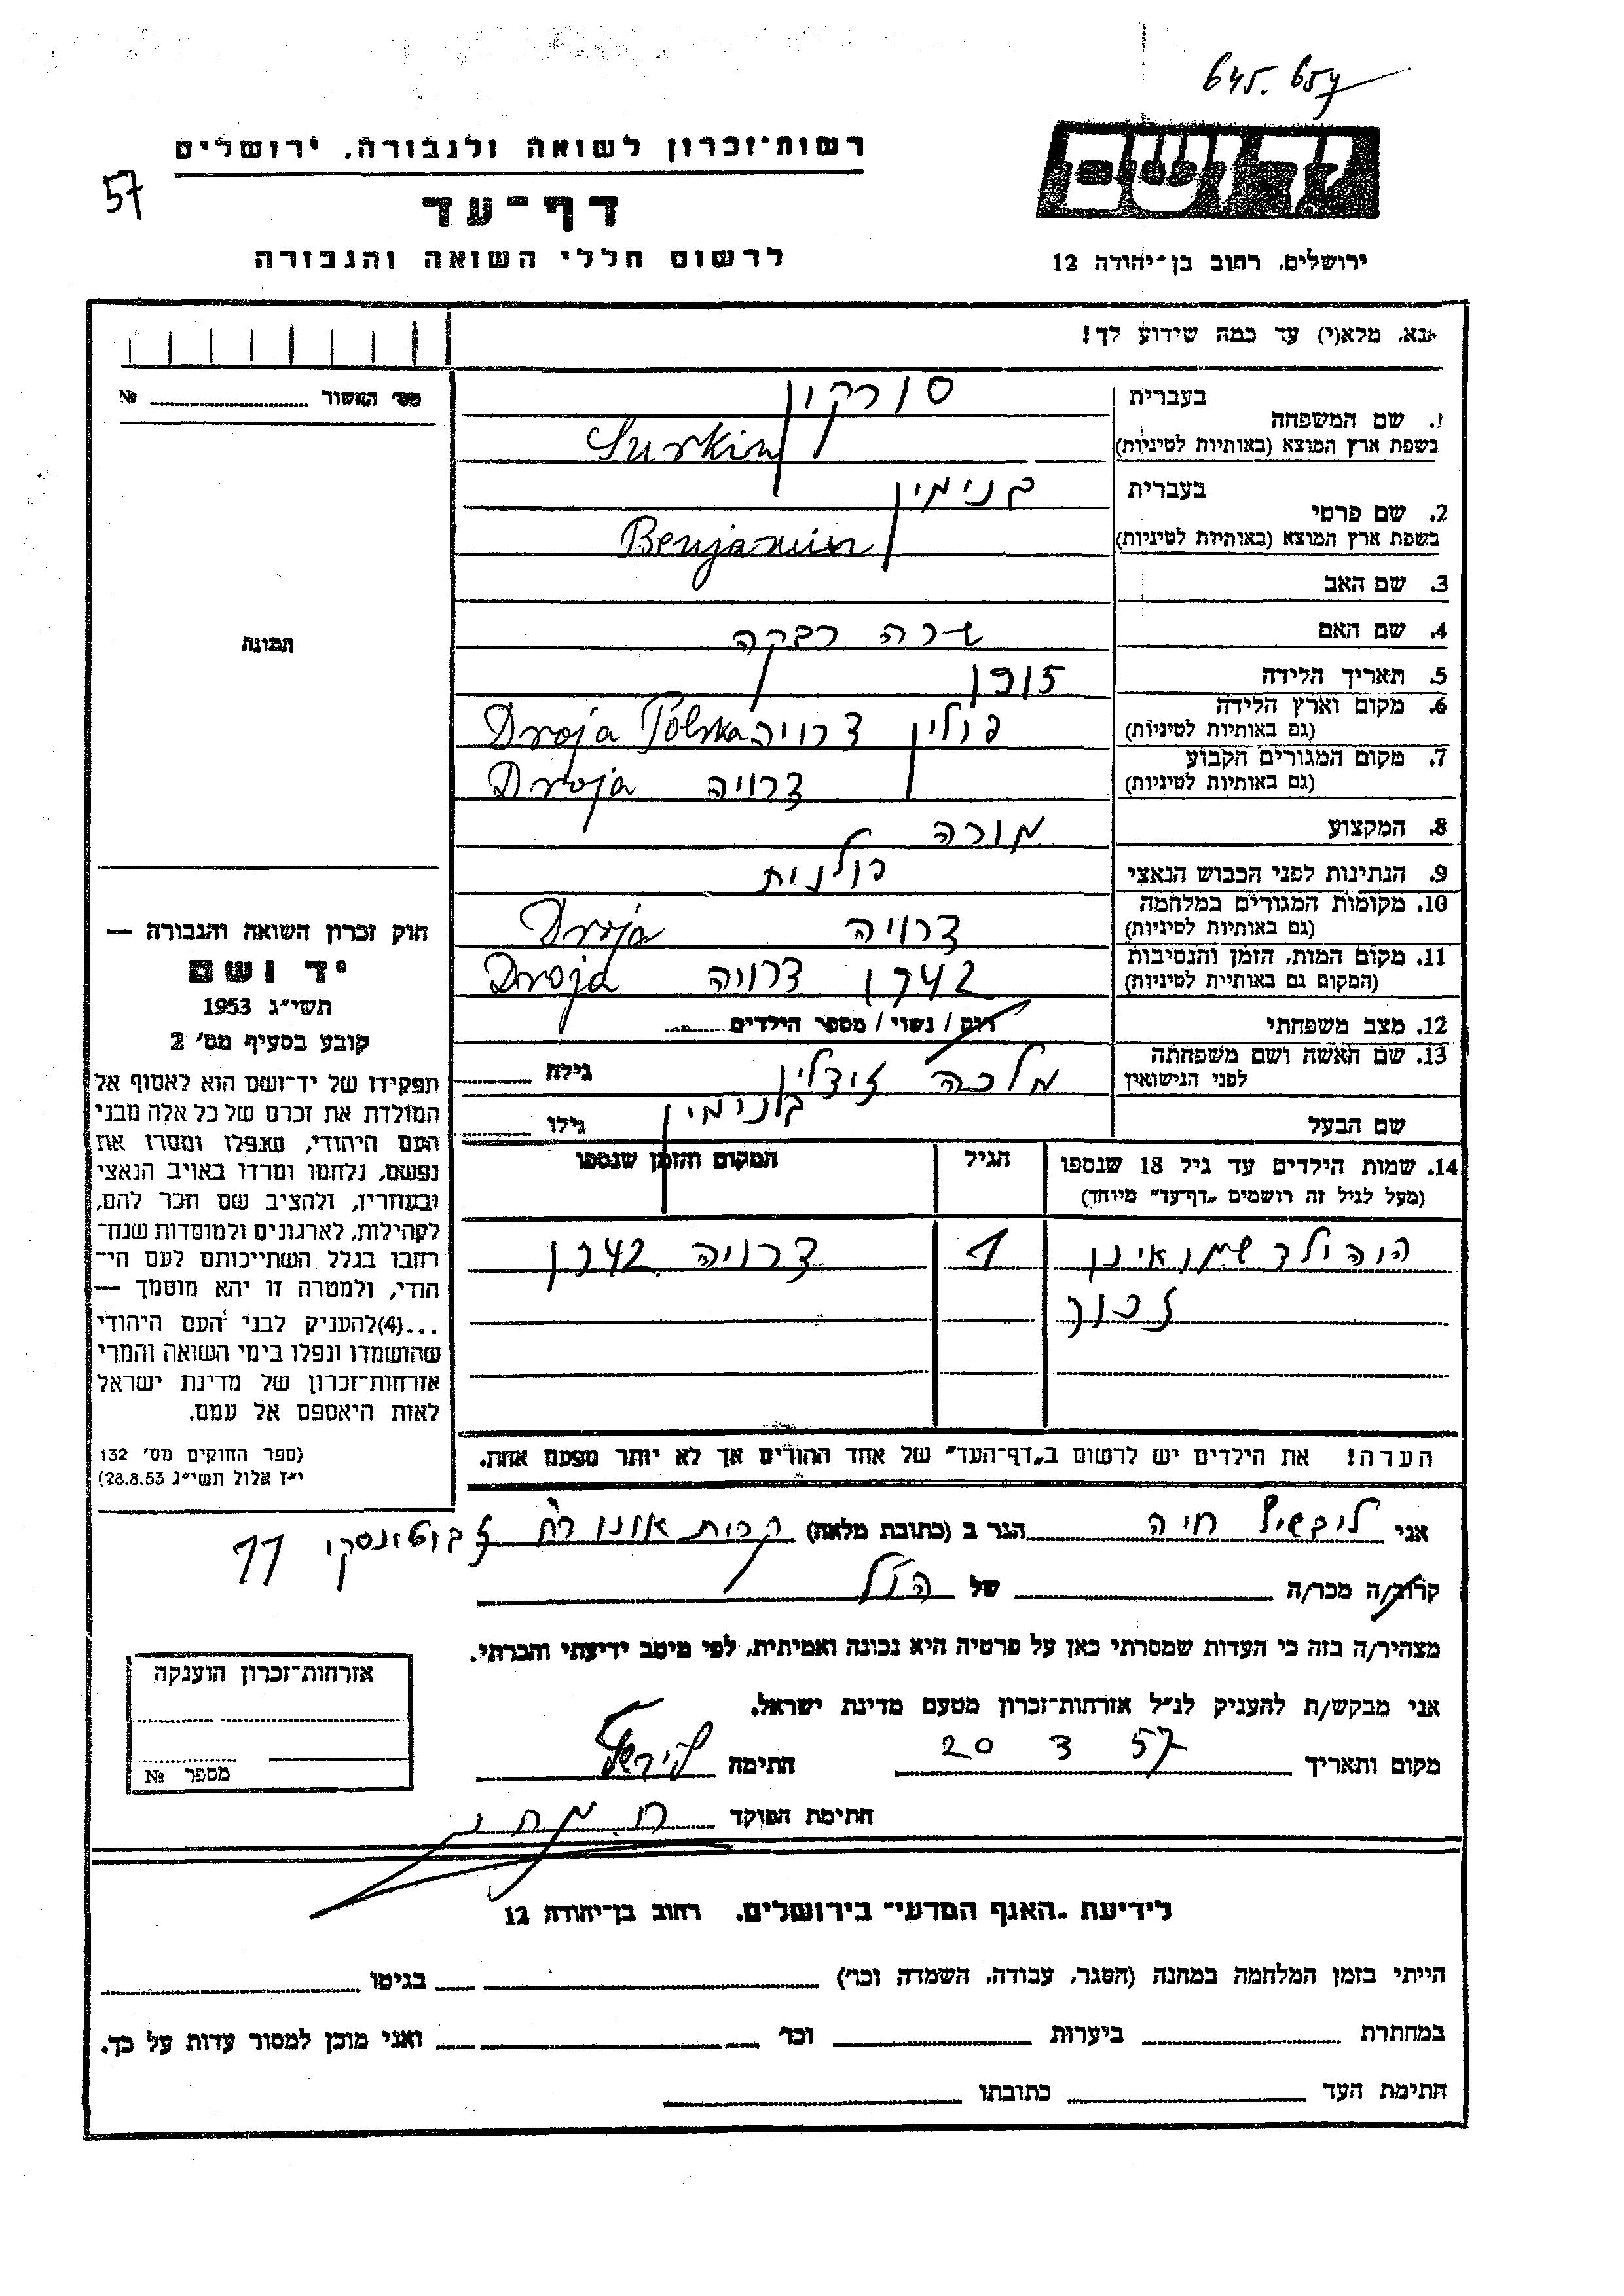 645.657
רשות־זכרון לשואה ולגבורה, ירושלים
57
דף־עד
לרשום חללי השואה והגבורה
יד ושם
ירושלים, רחוב בן־יהודה 12
אנא, מלא(י) עד כמה שידוע לך!
מס' האשור № 
1. שם המשפחה בעברית סורקין
בשפת ארץ המוצא (באותיות לטיניות) Surkin
2. שם פרטי בעברית בנימין
בשפת ארץ המוצא (באותיות לטיניות) Benjamin
3. שם האב
4. שם האם שרה רבקה
5. תאריך הלידה
6. מקום וארץ הלידה (גם באותיות לטיניות) פולין דרויה Droja Polska
7. מקום המגורים הקבוע (גם באותיות לטיניות) דרויה Droja
8. המקצוע מורה
9. הנתינות לפני הכבוש הנאצי פולנית
10. מקומות המגורים במלחמה (גם באותיות לטיניות) דרויה Droja
11. מקום המות, הזמן והנסיבות (המקום גם באותיות לטיניות) 1942 דרויה Droja
12. מצב משפחתי רוק / נשוי / מספר הילדים
13. שם האשה ושם משפחתה לפני הנישואין מלכה זידלין גילה
שם הבעל בנימין גילו
14. שמות הילדים עד גיל 18 שנספו (מעל לגיל זה רושמים "דף־עד" מיוחד)
הגיל
המקום והזמן שנספו
1 דרויה 1942
לזכור
הערה! את הילדים יש לרשום ב"דף־העד" של אחד ההורים אך לא יותר מפעם אחת.
תמונה
חוק זכרון השואה והגבורה —
יד ושם
תשי"ג 1953
קובע בסעיף מס' 2
תפקידו של יד־ושם הוא לאסוף אל
המולדת את זכרם של כל אלה מבני
העם היהודי, שנפלו ומסרו את
נפשם, נלחמו ומרדו באויב הנאצי
ובעוזריו, ולהציב שם וזכר להם,
לקהילות, לארגונים ולמוסדות שנח־
רבו בגלל השתייכותם לעם הי־
הודי, ולמטרה זו יהא מוסמך —
...(4) להעניק לבני העם היהודי
שהושמדו ונפלו בימי השואה והמרי
אזרחות־זכרון של מדינת ישראל
לאות היאספם אל עמם.
(ספר החוקים מס' 132
י"ז אלול תשי"ג 28.8.53)
אני ליבשיץ חיה הגר ב (כתובת מלאה) קרית אונו רח' ז'בוטינסקי 11
קרוב/ה מכר/ה של הנ"ל
מצהיר/ה בזה כי העדות שמסרתי כאן על פרטיה היא נכונה ואמיתית, לפי מיטב ידיעתי והכרתי.
אני מבקש/ת להעניק לנ"ל אזרחות־זכרון מטעם מדינת ישראל.
מקום ותאריך 20 3 57 חתימה
חתימת הפוקד
אזרחות־זכרון הוענקה
מספר №
לידיעת "האגף המדעי" בירושלים, רחוב בן־יהודה 12
הייתי בזמן המלחמה במחנה (הסגר, עבודה, השמדה וכו') בגיטו
במחתרת ביערות וכו' ואני מוכן למסור עדות על כך.
חתימת העד כתובתו